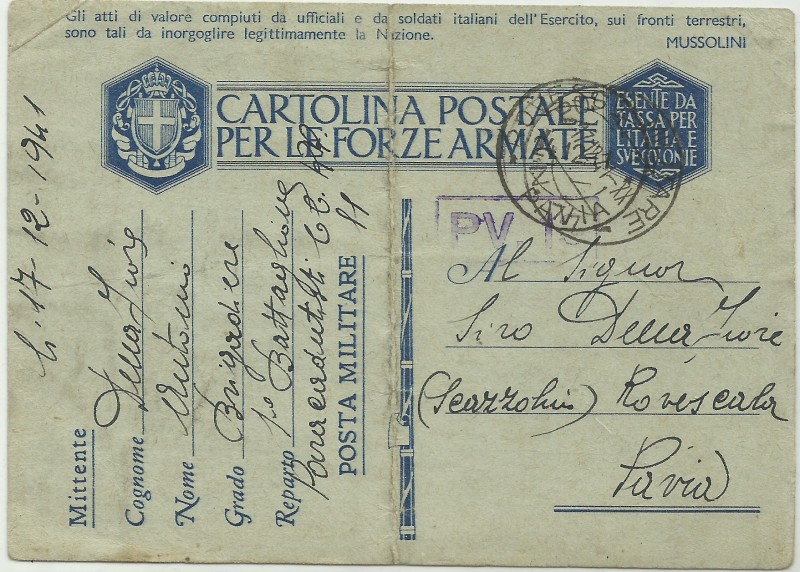 Gli atti di valore compiuti da ufficiali e da soldati italiani dell'Esercito, sui fronti terrestri,
sono tali da inorgoglire legittimamente la Nazione.
MUSSOLINI
CARTOLINA POSTALE
PER LE FORZE ARMATE
ESENTE DA
TASSA PER
L'ITALIA E
SVE COLONIE
POSTA MILITARE
PV
Al Signor
Siro Della Fiore
(Scazzolino) Rovescala
Pavia
li 17-12-1941
Mittente
Cognome Della Fiore
Nome Antonio
Grado Brigadiere
Reparto 1º Battaglione
Paracadutisti CC. RR.
POSTA MILITARE 11